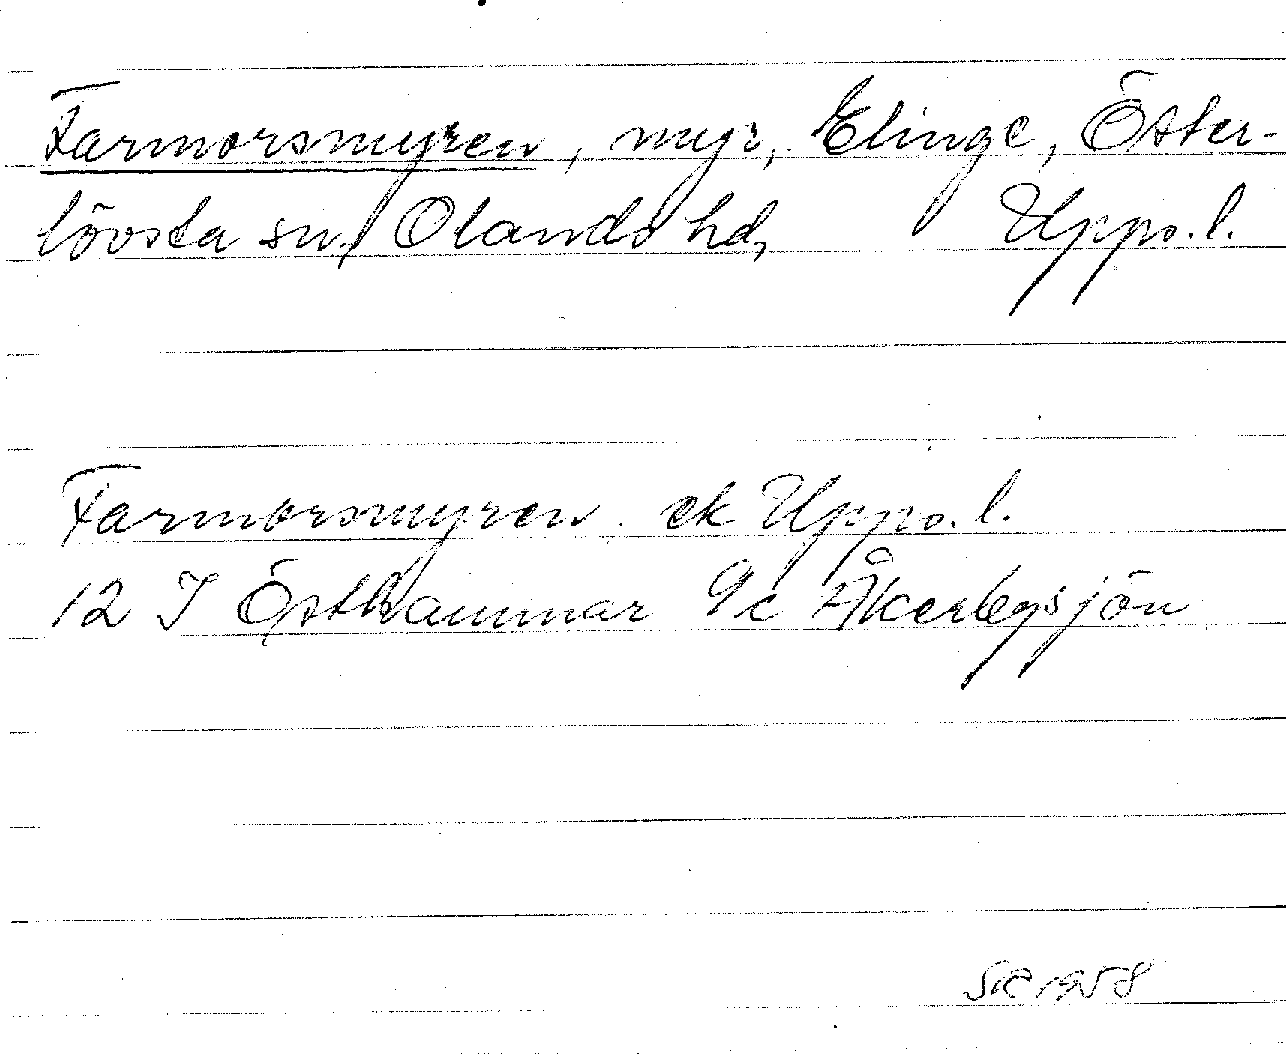 Farmorsmyren, myr, Elinge, Öster-
lövsta sn, Olands hd, Upps.l.
Farmorsmyren. ek Upps.l.
12 I Östhammar 9c Åkerbysjön
1958